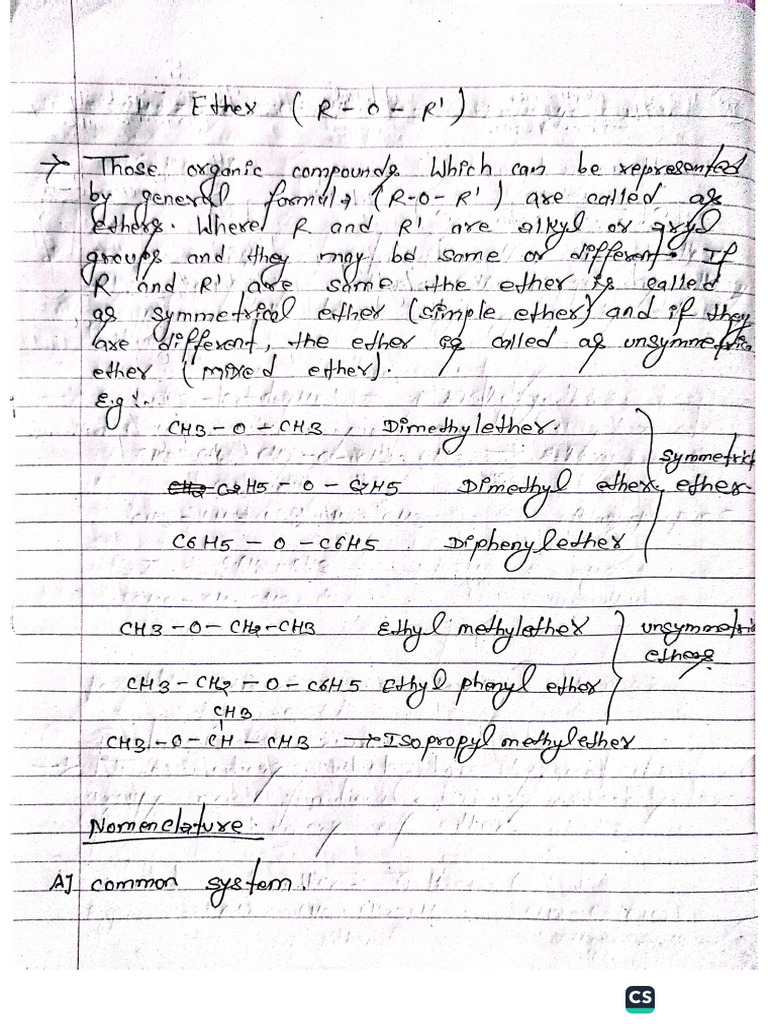 Ether (R-O-R')
→ Those organic compounds which can be represented
by general formula (R-O-R') are called as
ethers. Where R and R' are alkyl or aryl
groups and they may be same or different. If
R and R' are same the ether is called
as symmetrical ether (simple ether) and if they
are different, the ether is called as unsymmetric
ether (mixed ether).
E.g:-
CH3-O-CH3 Dimethylether.
symmetric
C2H5-O-C2H5 Dimethyl ether ether.
C6H5-O-C6H5 Diphenylether
CH3-O-CH2-CH3 Ethyl methylether unsymmetric
ethers.
CH3-CH2-O-C6H5 Ethyl phenyl ether
CH3
CH3-O-CH-CH3 → Isopropyl methylether
Nomenclature
A] common system.
CS